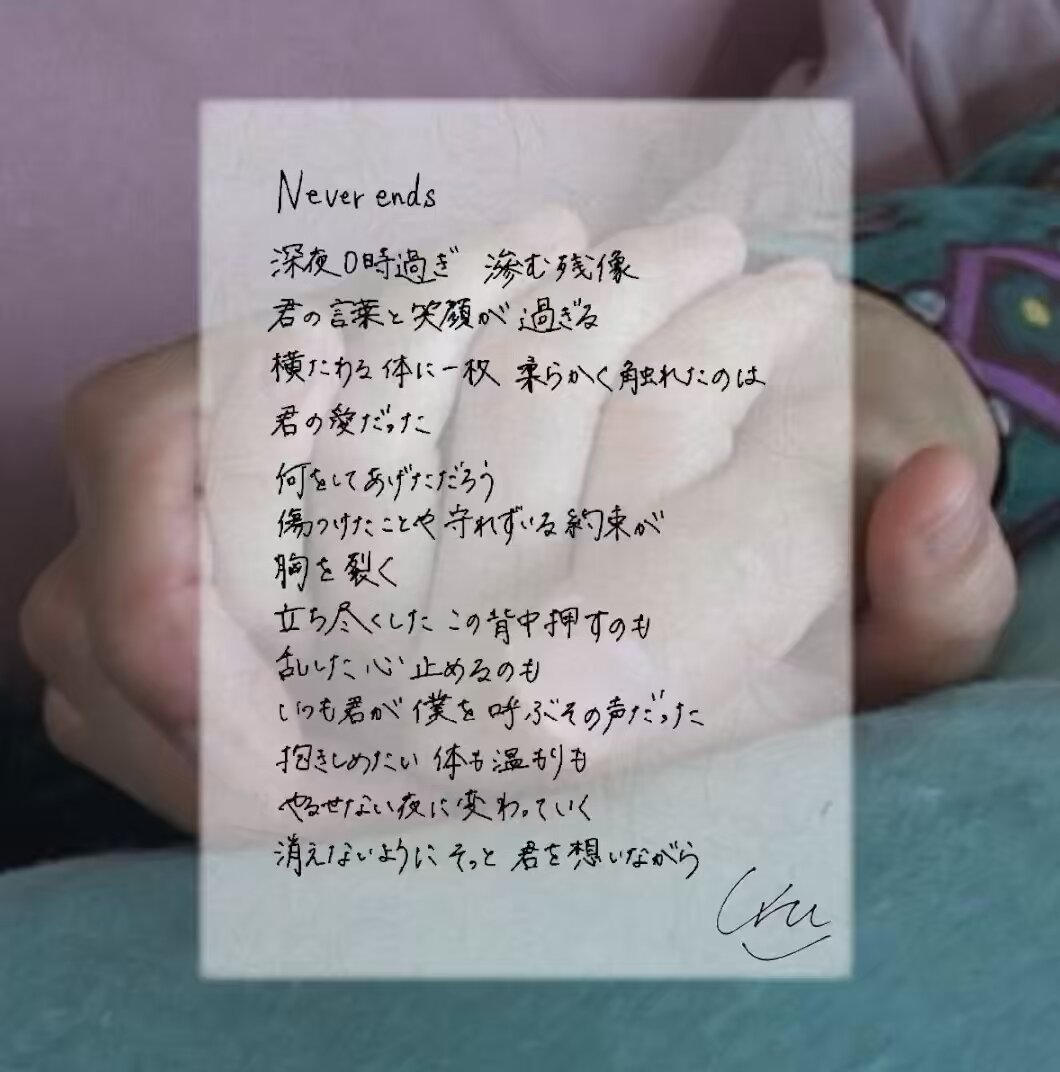 Never ends
深夜0時過ぎ 滲む残像
君の言葉と笑顔が過ぎる
横たわる体に一枚 柔らかく触れたのは
君の愛だった
何をしてあげただろう
傷つけたことや守れずいる約束が
胸を裂く
立ち尽くした この背中押すのも
乱した心 止めるのも
いつも君が僕を呼ぶその声だった
抱きしめたい 体も温もりも
やるせない夜に変わっていく
消えないようにそっと 君を想いながら
Uru